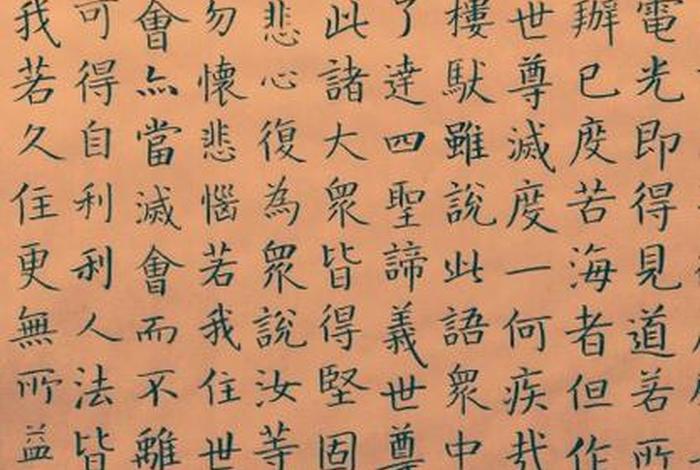 電光即得見道若所
辦已度苦海者但作
世尊滅度一何疾哉
樓馱雖說此語眾中
了達四聖諦義世尊
此諸大眾皆得堅固
悲心復為眾說汝等
勿懷悲惱若我住世
會亦當滅會而不離
可得自利利人法皆
我若久住更無所益